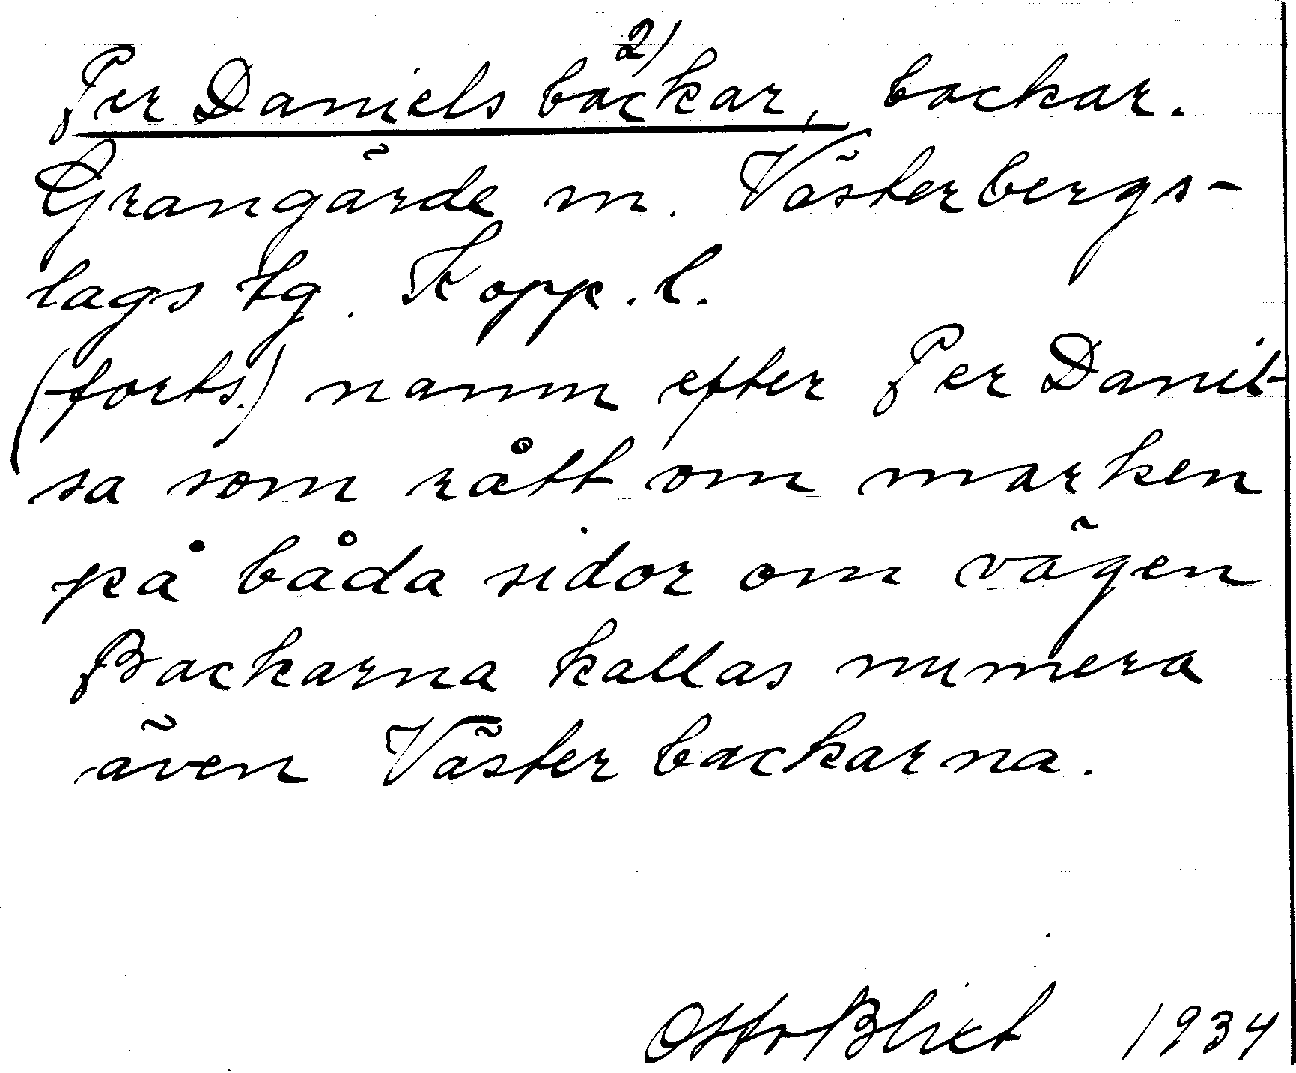 Per Daniels backar, 2) backar.
Grangärde sn. Västerbergs-
lags tg. Kopp. l.
(forts.) namn efter Per Danil-
sa som rått om marken
på båda sidor om vägen
Backarna kallas numera
även Västerbackarna.
Otto Blixt 1934